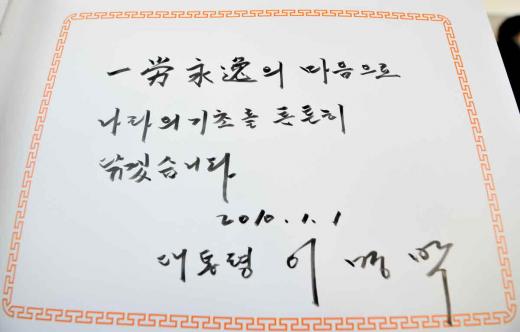 一劳永逸의 마음으로
나라의 기초를 튼튼히
닦겠습니다.
2010.1.1
대통령 이 명 박